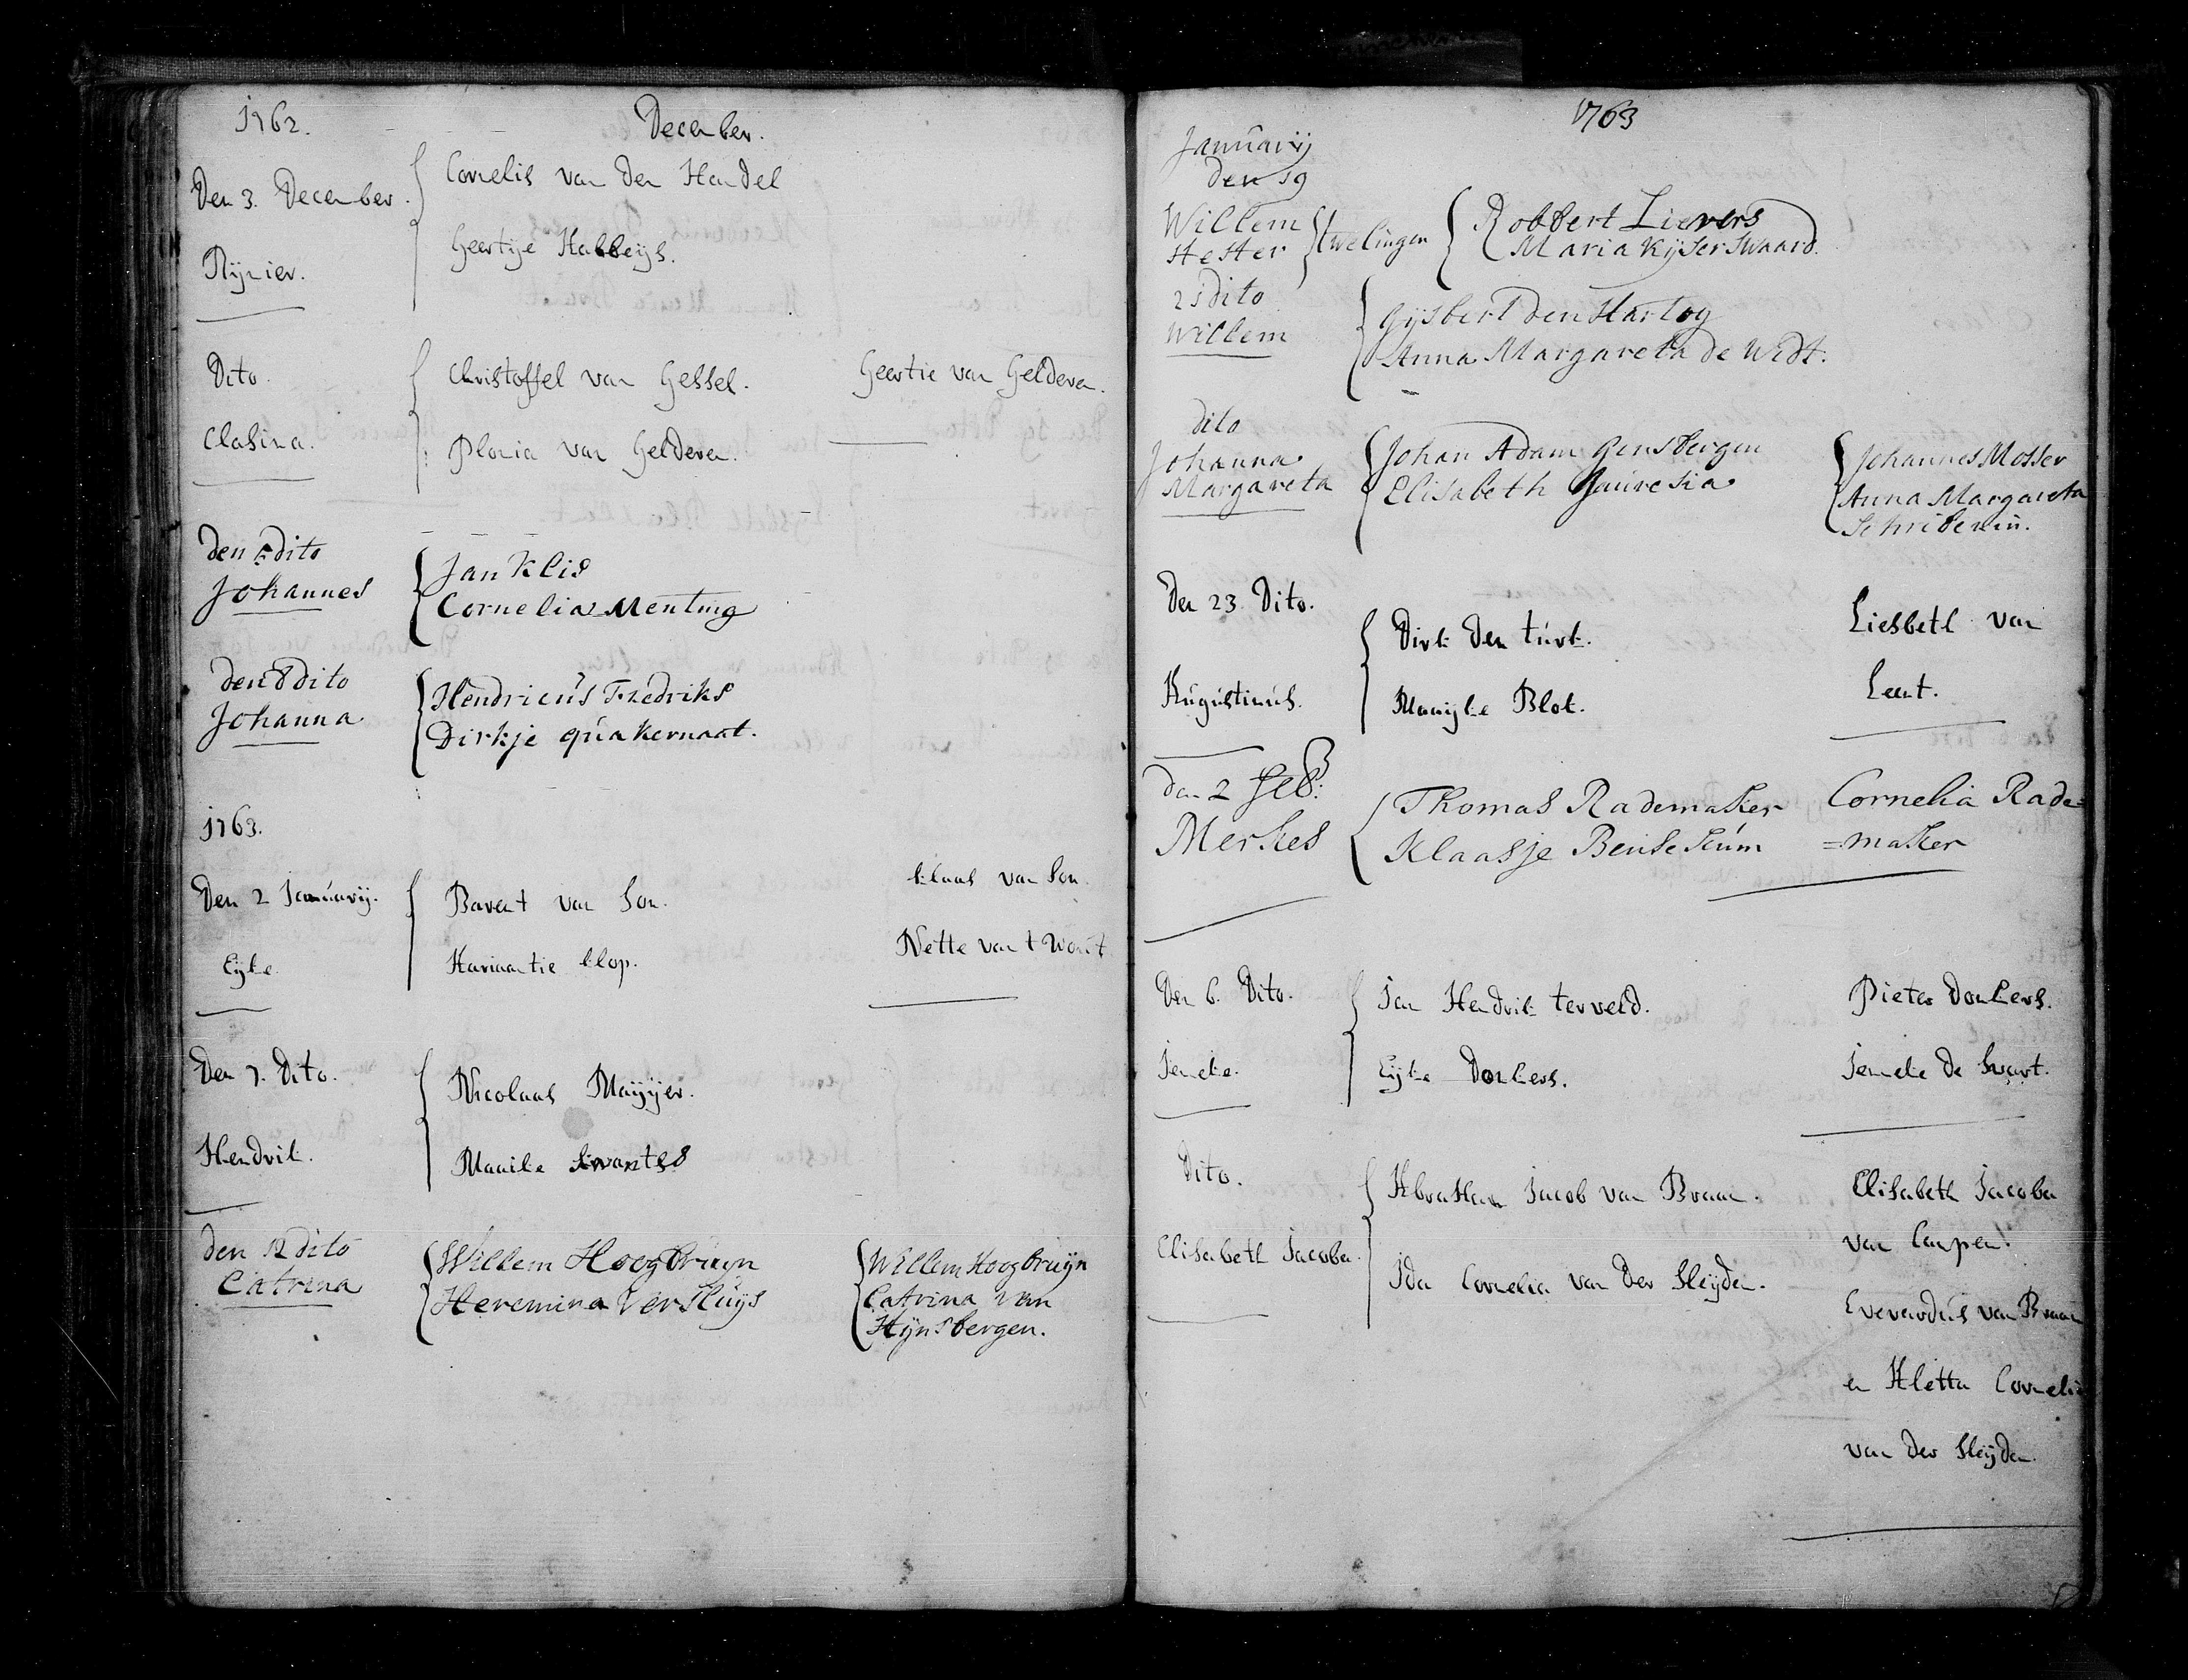 1762.
December.
Den 3. December.
Cornelis van den Handel
Rijnier.
Geertije Habbeijs.
Dito.
Christoffel van Gessel.
Geertie van Gelderen.
Clasina.
Plonia van Gelderen.
den 5 dito
Johannes
Jan Klis
Cornelia Menting
den 8 dito
Johanna
Hendricus Fredriks
Dirkje quakernaat.
1763.
Den 2 Januarij.
Barent van Son.
Klaas van Son.
Eijke
Hariaantie Klop.
Nette van t Wout
Den 7. Dito.
Nicolaas Maijer.
Hendrik.
Maaike Swantes
den 12 dito
Catrina
Willem Hoogbruijn
Heremina Versluijs
Willem Hoogbruijn
Catrina van
Hijnsbergen.
1763
Januarij
den 19
Willem
Hester
twelingen
Robbert Lievers
Maria Kijserswaard.
21 dito
Willem
Gijsbert den Hartog
Anna Margareta de Widt.
dito
Johanna
Margareta
Johan Adam Gensbergen
Elisabeth
Johannes Mosser
Anna Margareta
Schriberin.
Den 23. Dito.
Dirk den turk.
Liesbeth van
Leent.
Augustinus.
Maaijke Blok.
den 2 Feb:
Merkes
Thomas Rademaker
Klaasje
Cornelia Rade=
=maker
Den 6. Dito.
Jan Hendrik terveld.
Pieter Donkers.
Jeneke.
Eijke Donkers.
Jeneke de Swart.
Dito.
Abraham Jacob van Braam.
Elisabeth Jacoba
van Campen.
Elisabeth Jacoba.
Ida Cornelia van der Sleijden.
Everardus van Braam
en Aletta Cornelia
van der Sleijden.